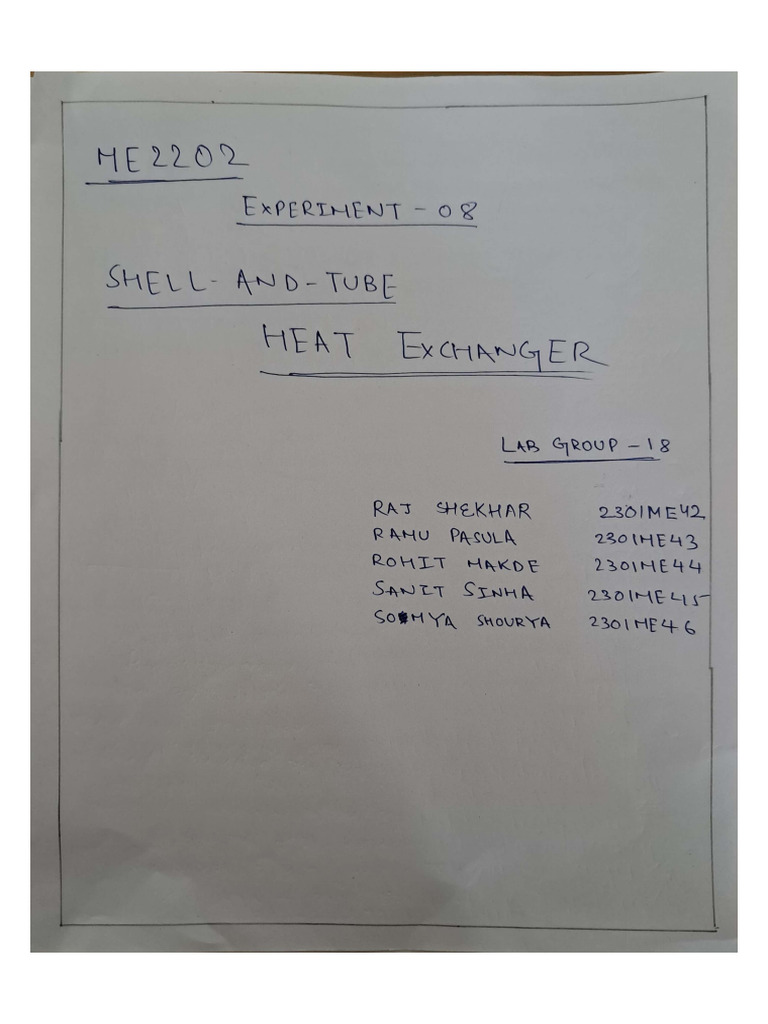 ME2202
EXPERIMENT - 08
SHELL-AND-TUBE
HEAT EXCHANGER
LAB GROUP - 18
RAJ SHEKHAR 2301ME42
RAMU PASULA 2301ME43
ROHIT MAKDE 2301ME44
SANIT SINHA 2301ME45
SOMYA SHOURYA 2301ME46